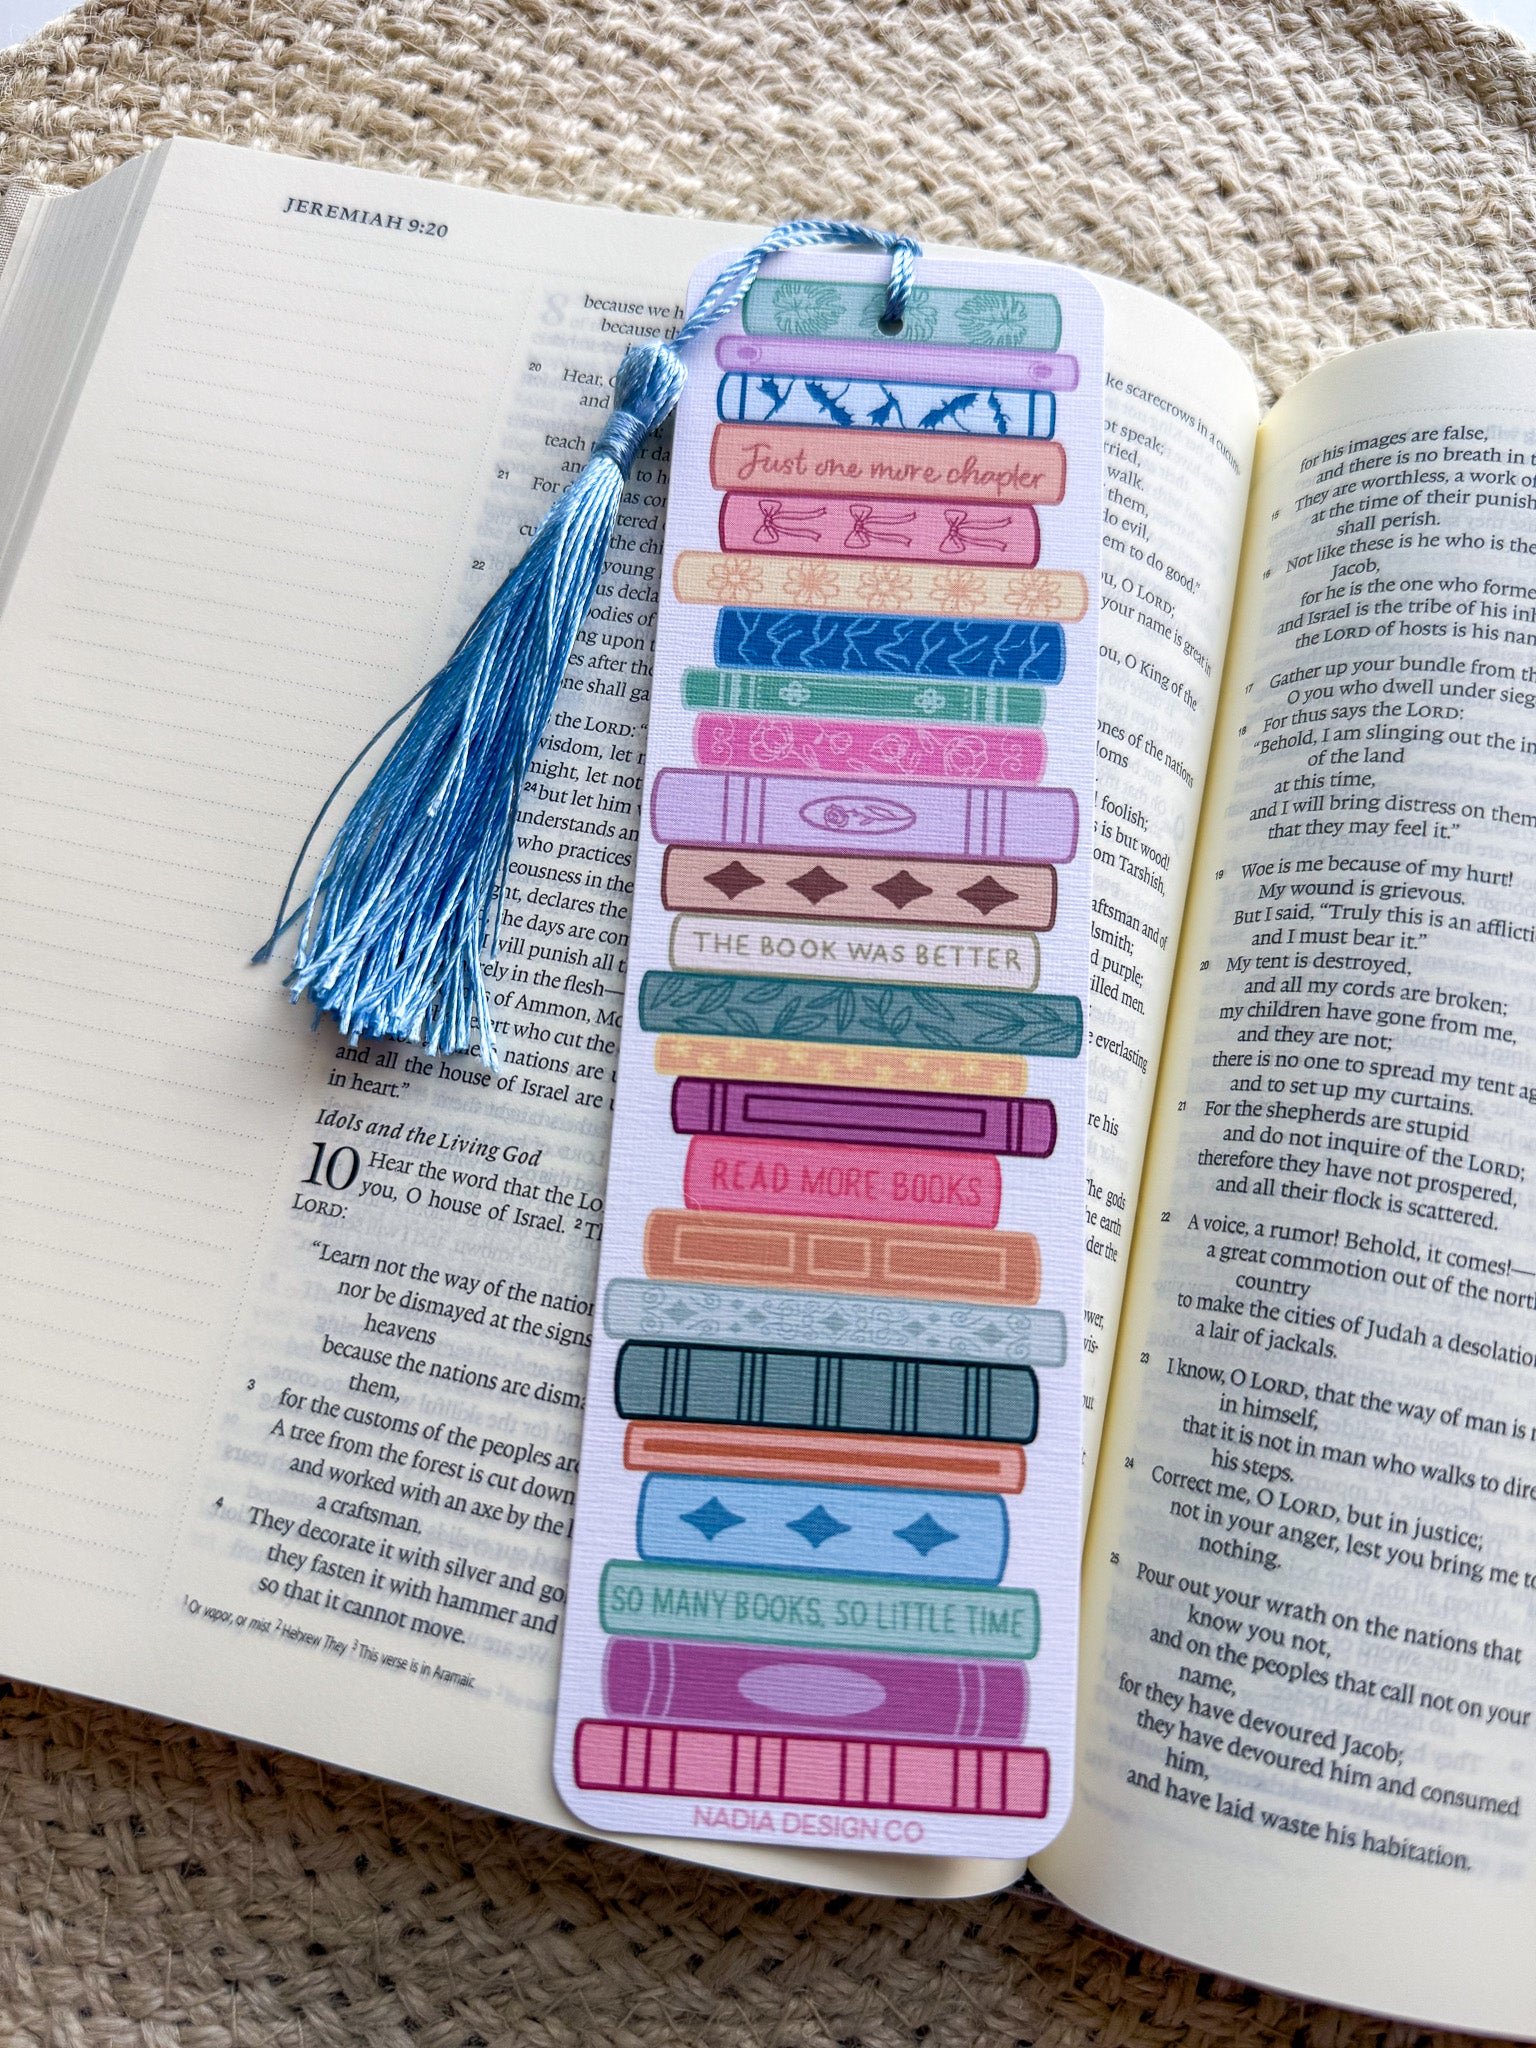 JEREMIAH 9:20
8
because we h
because th
20 Hear,
and
teach
and to he
21 For d
has con
cu
the chi
22 young
us decla
bodies of
ng upon t
es after the
one shall ga
the LORD: “
wisdom, let
night, let not
24 but let him
understands an
who practices
eousness in the
ght, declares the
he days are com
I will punish all t
ely in the flesh—
s of Ammon, Mo
ert who cut the
nations are u
and all the house of Israel are u
in heart.”
Idols and the Living God
10 Hear the word that the LO
you, O house of Israel. 2 Th
LORD:
“Learn not the way of the nation
nor be dismayed at the signs
heavens
because the nations are disma
them,
3 for the customs of the peoples are
A tree from the forest is cut down
and worked with an axe by the
a craftsman.
4 They decorate it with silver and go
they fasten it with hammer and
so that it cannot move.
1 Or vapor, or mist 2 Hebrew They 3 This verse is in Aramaic
Just one more chapter
THE BOOK WAS BETTER
READ MORE BOOKS
SO MANY BOOKS, SO LITTLE TIME
NADIA DESIGN CO
ke scarecrows in a cucum-
ot speak;
rried,
walk.
them,
do evil,
em to do good.”
ou, O LORD;
your name is great in
ou, O King of the
ones of the nations
doms
foolish;
s is but wood!
om Tarshish,
aftsman and of
ldsmith;
d purple;
illed men.
e everlasting
re his
The gods
he earth
der the
ower,
vis-
out
for his images are false,
and there is no breath in t
15 They are worthless, a work of
at the time of their punish
shall perish.
16 Not like these is he who is the
Jacob,
for he is the one who forme
and Israel is the tribe of his inh
the LORD of hosts is his nam
17 Gather up your bundle from th
O you who dwell under sieg
18 For thus says the LORD:
“Behold, I am slinging out the in
of the land
at this time,
and I will bring distress on them
that they may feel it.”
19 Woe is me because of my hurt!
My wound is grievous.
But I said, “Truly this is an afflicti
and I must bear it.”
20 My tent is destroyed,
and all my cords are broken;
my children have gone from me,
and they are not;
there is no one to spread my tent ag
and to set up my curtains.
21 For the shepherds are stupid
and do not inquire of the LORD;
therefore they have not prospered,
and all their flock is scattered.
22 A voice, a rumor! Behold, it comes!—
a great commotion out of the north
country
to make the cities of Judah a desolatio
a lair of jackals.
23 I know, O LORD, that the way of man is n
in himself,
that it is not in man who walks to dire
his steps.
24 Correct me, O LORD, but in justice;
not in your anger, lest you bring me to
nothing.
25 Pour out your wrath on the nations that
know you not,
and on the peoples that call not on your
name,
for they have devoured Jacob;
they have devoured him and consumed
him,
and have laid waste his habitation.